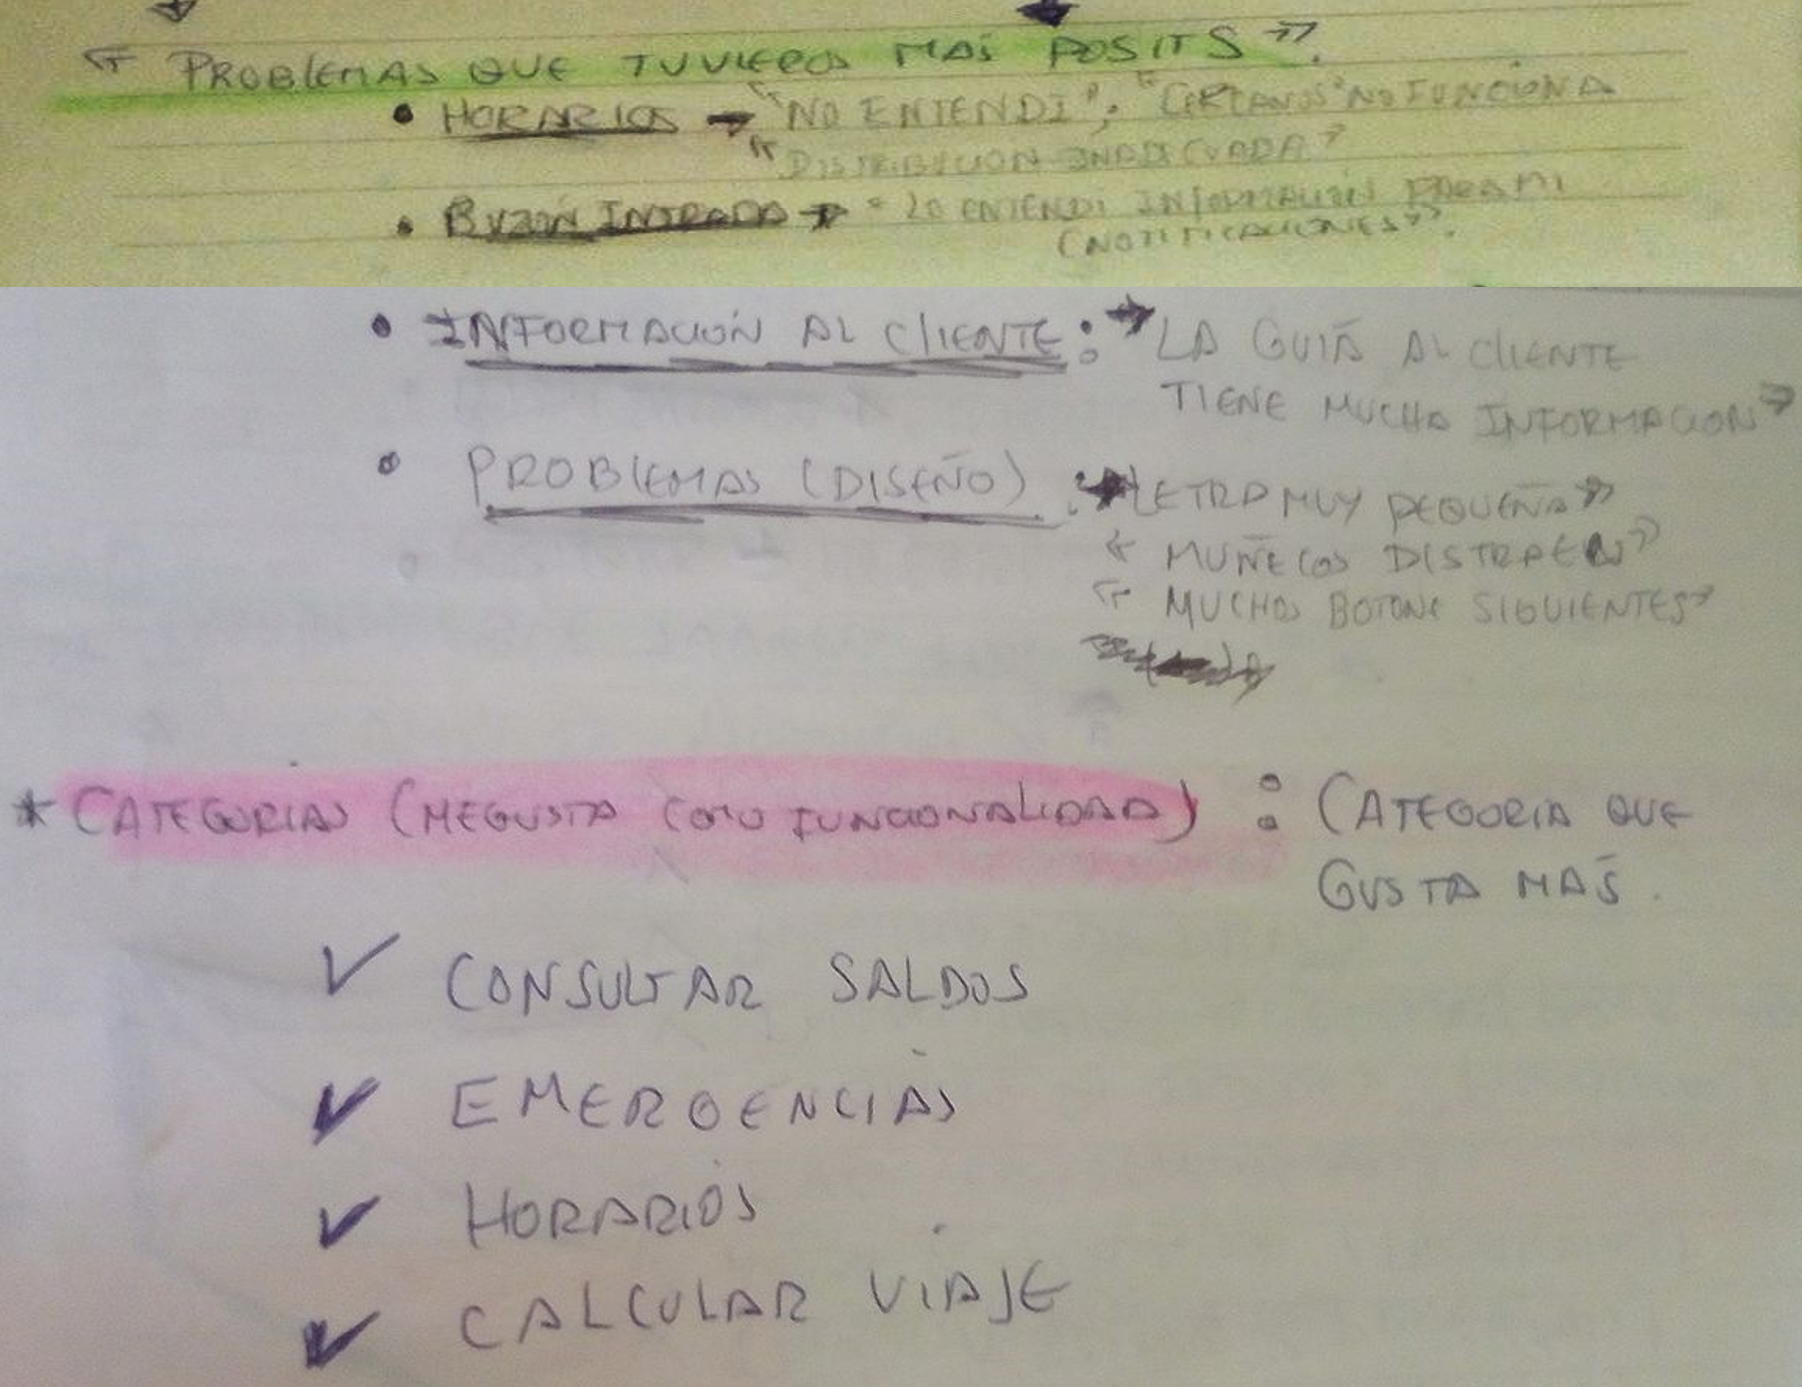 " PROBLEMAS QUE TUVIEROS MAS POSITS ".
• HORARIOS → "NO ENTENDI"; "CERCANOS" NO FUNCIONA
"DISTRIBUCION INADECUADA"
• BUZÓN INTRADA → "LO ENTENDI INFORMACIÓN PARA MI
(NOTIFICACIONES)".
• INFORMACIÓN AL CLIENTE : "LA GUIÁ AL CLIENTE
TIENE MUCHA INFORMACION"
• PROBLEMAS (DISEÑO) : "LETRA MUY PEQUEÑA"
" MUÑECOS DISTRAEN"
" MUCHOS BOTONE SIGUIENTES"
* CATEGORIAS (ME GUSTA COMO FUNCIONALIDAD) : CATEGORIA QUE
GUSTA MAS.
✓ CONSULTAR SALDOS
✓ EMERGENCIAS
✓ HORARIOS
✓ CALCULAR VIAJE